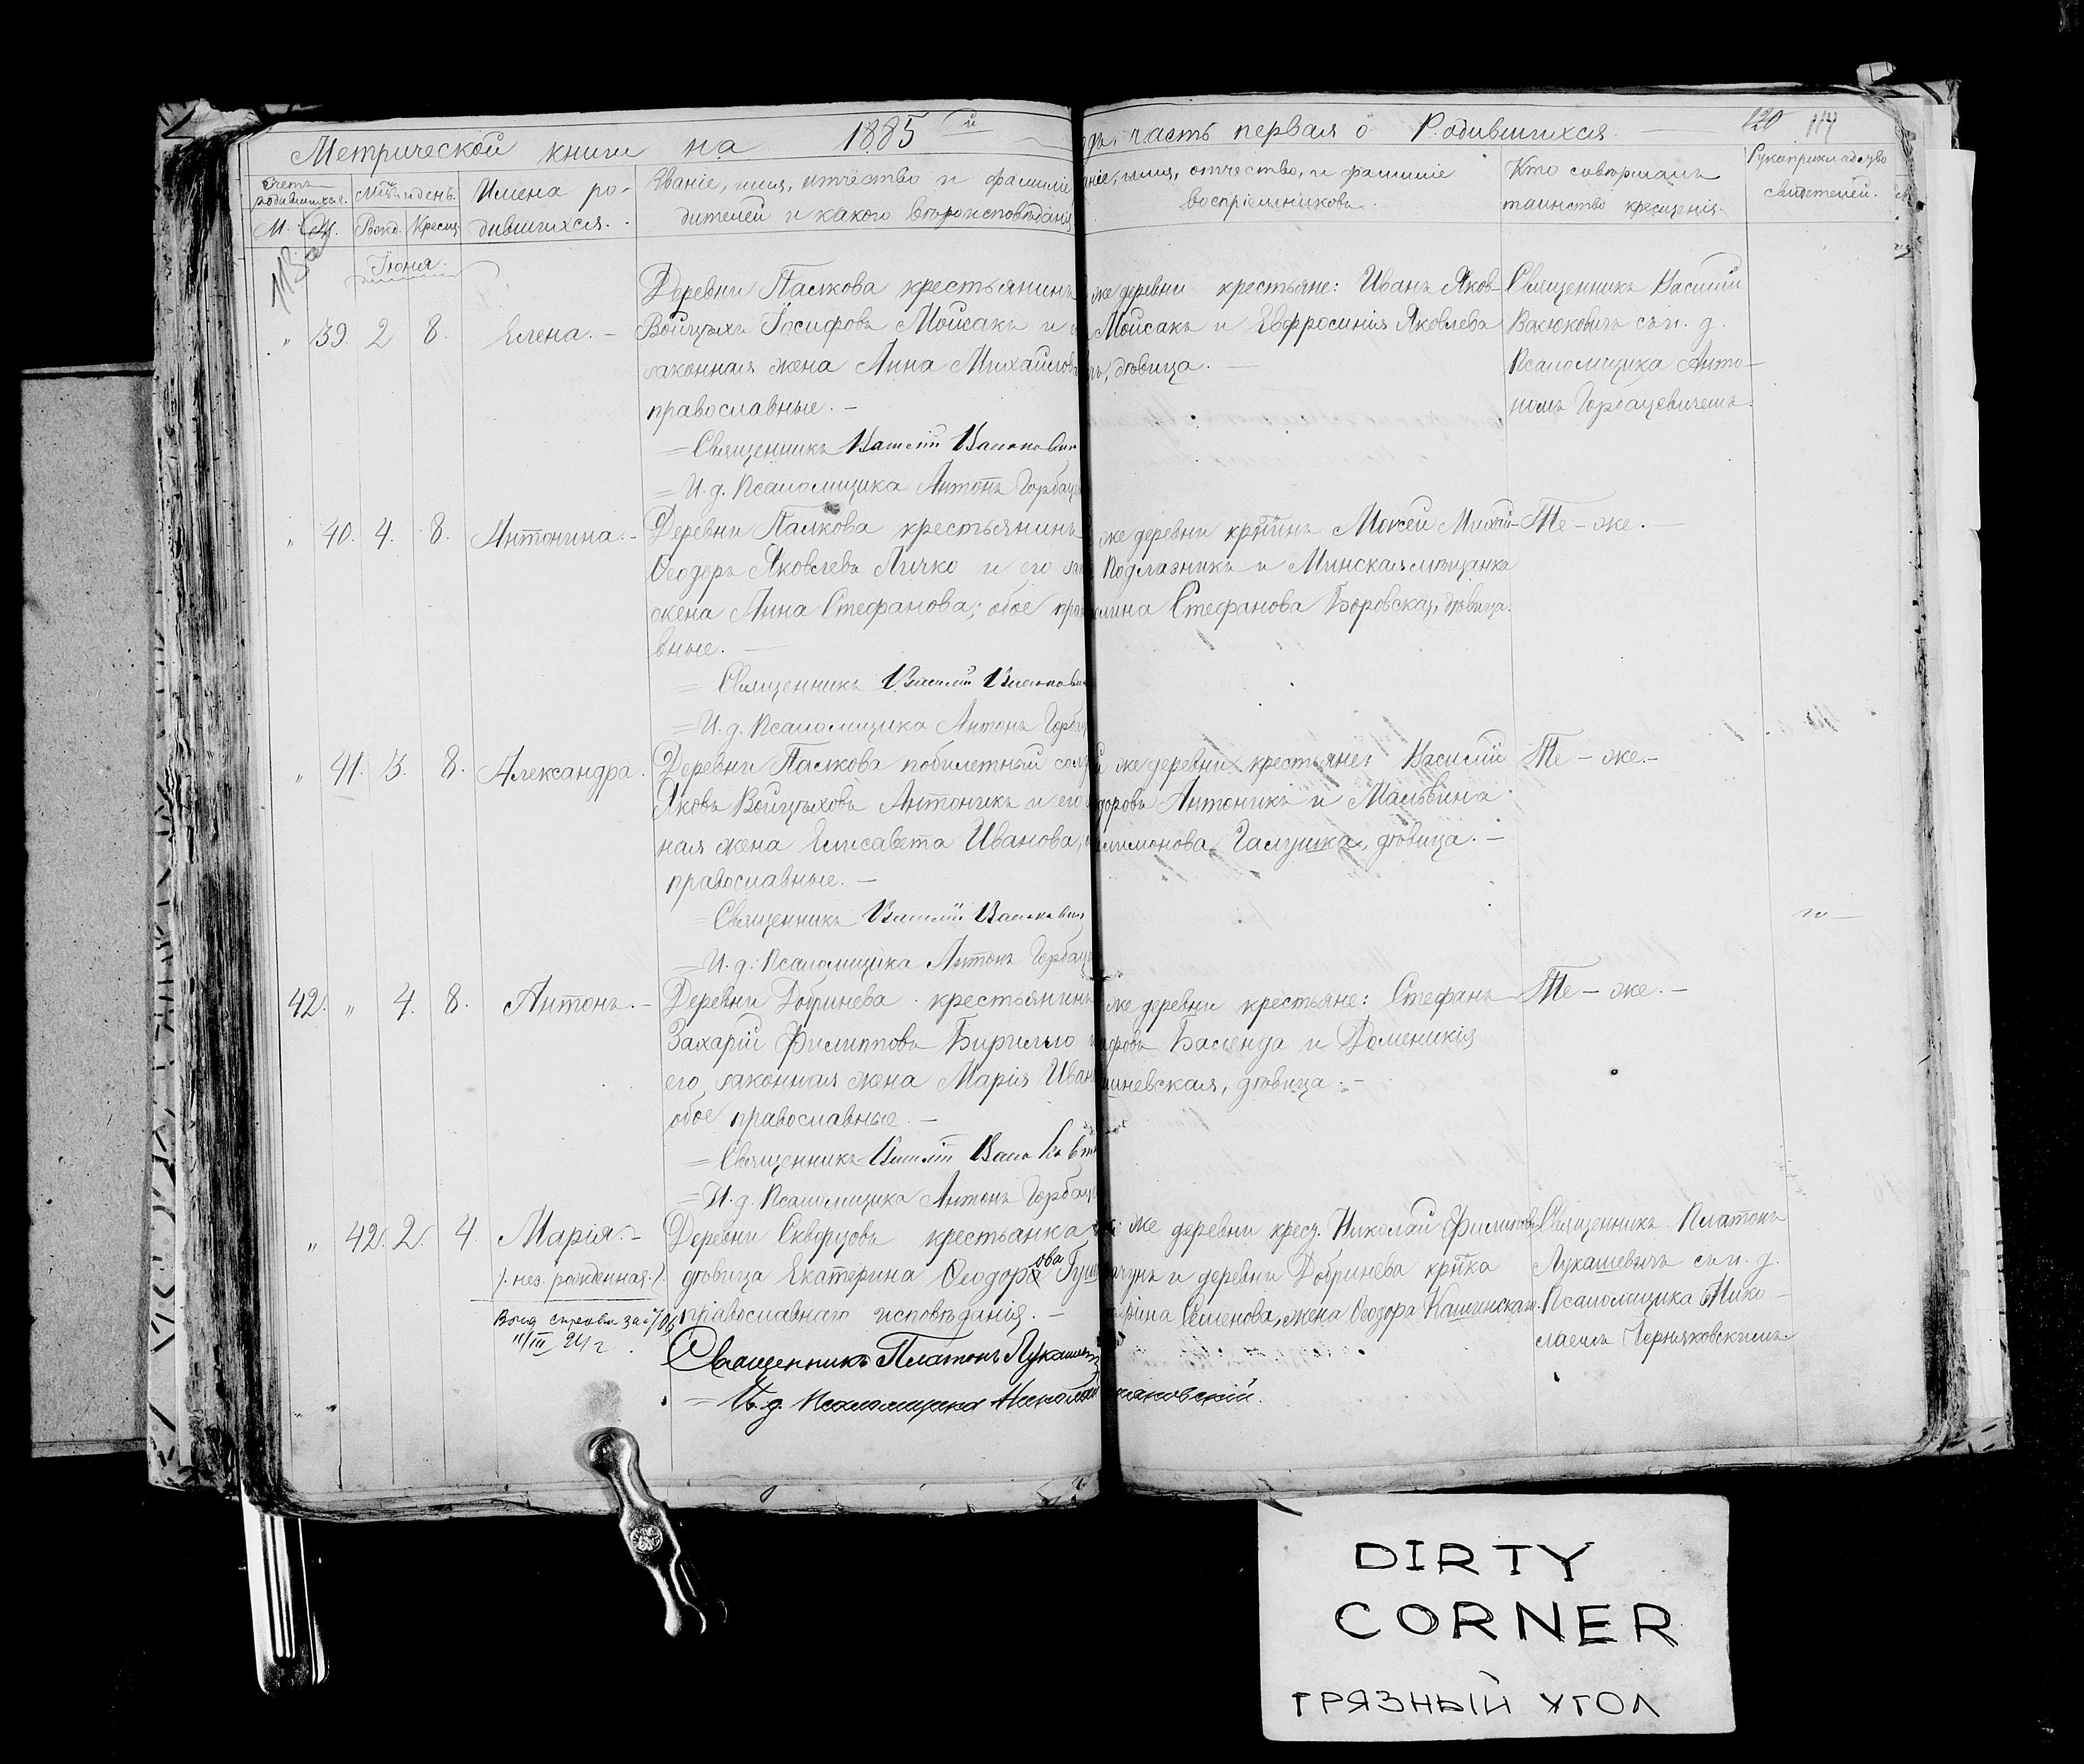 Метрической книги на 1885 й
дъ, часть первая о Родившихся.
120 114
Счетъ родившихся.
М. Ж.
Мѣс. и день.
Рожд. Крещ.
Имена ро-
дившихся.
Званіе, имя, отчество и фамилія
дителей и какого вѣроисповѣданія
аніе, имя, отчество, и фамилія
воспріемниковъ.
Кто совершалъ
таинство крещенія.
Рукоприкладство
свидетелей.
Іюня.
" 39. 2 8. Елена. –
Деревни Палкова крестьянинъ
Войцѣхъ Іосифовъ Мойсакъ и
законная жена Анна Михайлов
православные. –
= Священникъ Василій Васюкович
= И. д. Псаломщика Антонъ Горбац
же деревни крестьяне: Иванъ Яков-
Мойсакъ и Евфросинія Яковлева
дѣвица. –
Священникъ Василій
Васюковичъ съ и. д.
Псаломщика Анто-
номъ Горбацевичемъ.
" 40. 4. 8. Антонина. –
Деревни Палкова крестьянинъ
Ѳеодоръ Яковлевъ Личко и его зак
жена Анна Стефанова; обое прав
вные. –
= Священникъ Василій Васюкови
= И. д. Псаломщика Антонъ Горбац
же деревни кр‑нинъ Мокей Михай-
Подлазникъ и Минская мѣщанка
Стефанова Боровская, дѣвица.
Тѣ – же. –
" 41. 3. 8. Александра.
Деревни Палкова побилетный солд
Яковъ Войцѣховъ Антоникъ и его
ная жена Елисавета Иванова,
православные. –
= Священникъ Василій Васюкович
= И. д. Псаломщика Антонъ Горбац
же деревни крестьяне: Василій
доровъ Антоникъ и Мальвина
Галушка, дѣвица. –
Тѣ – же. –
42. " 4. 8. Антонъ. –
Деревни Добринева крестьянинъ
Захарій Филипповъ Бирилло и
его законная жена Марія Иван
обое православные. –
= Священникъ Василій Васюкович
= И. д. Псаломщика Антонъ Горбац
же деревни крестьяне: Стефанъ
Баленда и Доменикія
невская, дѣвица. –
Тѣ – же. –
" 42. 2. 4. Марія. –
/. нез. рожденная. /.
11/III 24 г.
Деревни Скворцовъ крестьянка
дѣвица Екатерина Ѳеодорова
православнаго исповѣданія. –
Священникъ Платонъ Лукашев
= И. д. Псаломщика Николай няковскій.
же деревни крест. Николай Филиппов
и деревни Добринева кр‑нка
Семенова, жена Ѳеодора Кашинская.
Священникъ Платонъ
Лукашевичъ съ и. д.
Псаломщика Нико-
лаемъ Черняковскимъ.
DIRTY
CORNER
ГРЯЗНЫЙ УГОЛ